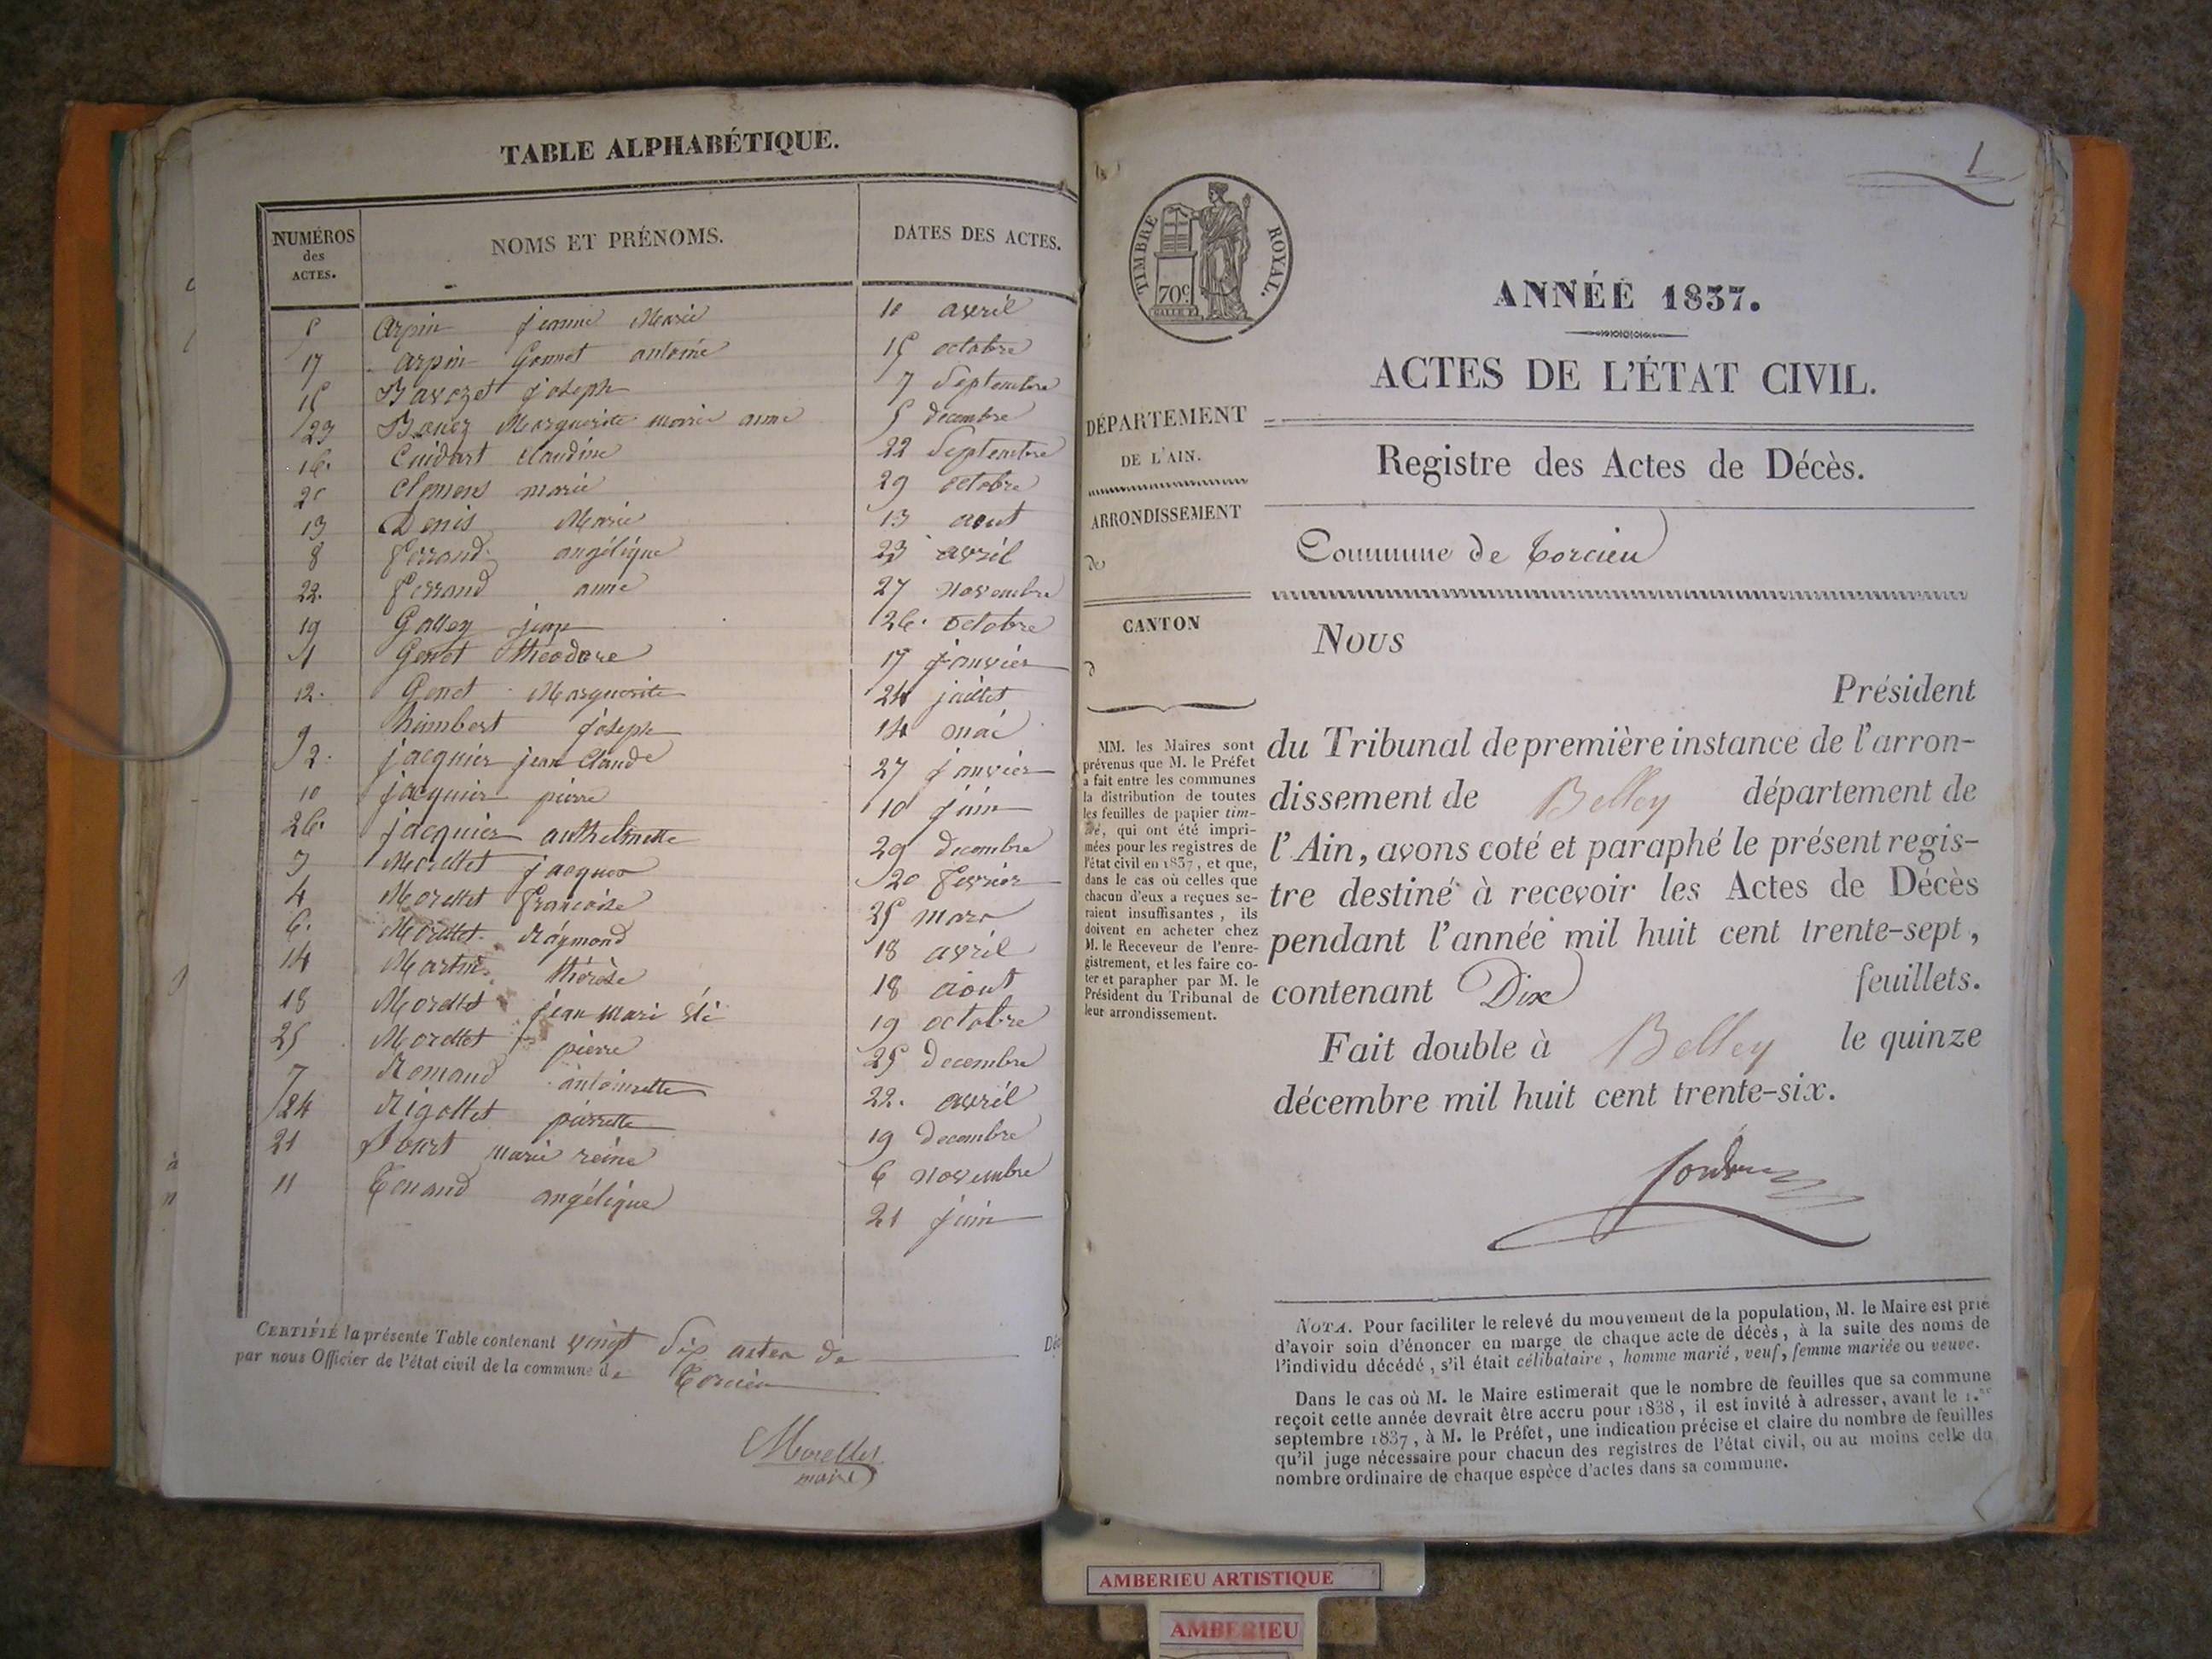 TABLE ALPHABÉTIQUE.
NUMÉROS
des
ACTES.
NOMS ET PRÉNOMS.
DATES DES ACTES.
5 arpin jeanne Marie 10 avril
17 arpin Gonnet antoine 15 octobre
15 joseph 7 Septembre
23 Marguerite marie anne 5 decembre
16. Cuidart claudine 22 Septembre
20 Clemens marie 29 octobre
13 Denis Marie 13 aout
8 ferrand angélique 23 avril
22. ferrand anne 27 novembre
19 Galley jean 26. octobre
1 Genet théodore 17 janvier
12. Genet Marguerite 24 juillet
9 humbert joseph 14 mai
2. jacquier jean Claude 27 janvier
10 jacquier pierre 10 juin
26. jacquier anthelmette 29 decembre
3 Morellet jacques 20 fevrier
4 Morellet françoise 25 mars
6. Morellet Raymond 18 avril
14 Martin thérèse 18 aout
18 Morellet jean mari 19 octobre
25 Morellet pierre 25 decembre
7 Romand antoinette 22. avril
24 Rigollet pierrette 19 decembre
21 marie reine 6 novembre
11 Tenand angélique 21 juin
CERTIFIÉ la présente Table contenant vingt Six actes de Déc
par nous Officier de l'état civil de la commune de Torcieu
Morellet
maire
1
TIMBRE ROYAL.
70c
ANNÉE 1837.
ACTES DE L'ÉTAT CIVIL.
Registre des Actes de Décès.
Commune de Torcieu
DÉPARTEMENT
DE L'AIN.
ARRONDISSEMENT
de
CANTON
d
MM. les Maires sont
prévenus que M. le Préfet
a fait entre les communes
la distribution de toutes
les feuilles de papier tim-
bré, qui ont été impri-
mées pour les registres de
l'état civil en 1837, et que,
dans le cas où celles que
chacun d'eux a reçues se-
raient insuffisantes, ils
doivent en acheter chez
M. le Receveur de l'enre-
gistrement, et les faire co-
ter et parapher par M. le
Président du Tribunal de
leur arrondissement.
Nous
Président
du Tribunal de première instance de l'arron-
dissement de Belley département de
l'Ain, avons coté et paraphé le présent regis-
tre destiné à recevoir les Actes de Décès
pendant l'année mil huit cent trente-sept,
contenant Dix feuillets.
Fait double à Belley le quinze
décembre mil huit cent trente-six.
NOTA. Pour faciliter le relevé du mouvement de la population, M. le Maire est prié
d'avoir soin d'énoncer en marge de chaque acte de décès, à la suite des noms de
l'individu décédé, s'il était célibataire, homme marié, veuf, femme mariée ou veuve.
Dans le cas où M. le Maire estimerait que le nombre de feuilles que sa commune
reçoit cette année devrait être accru pour 1838, il est invité à adresser, avant le 1.er
septembre 1837, à M. le Préfet, une indication précise et claire du nombre de feuilles
qu'il juge nécessaire pour chacun des registres de l'état civil, ou au moins celle du
nombre ordinaire de chaque espèce d'actes dans sa commune.
AMBERIEU ARTISTIQUE
AMBERIEU